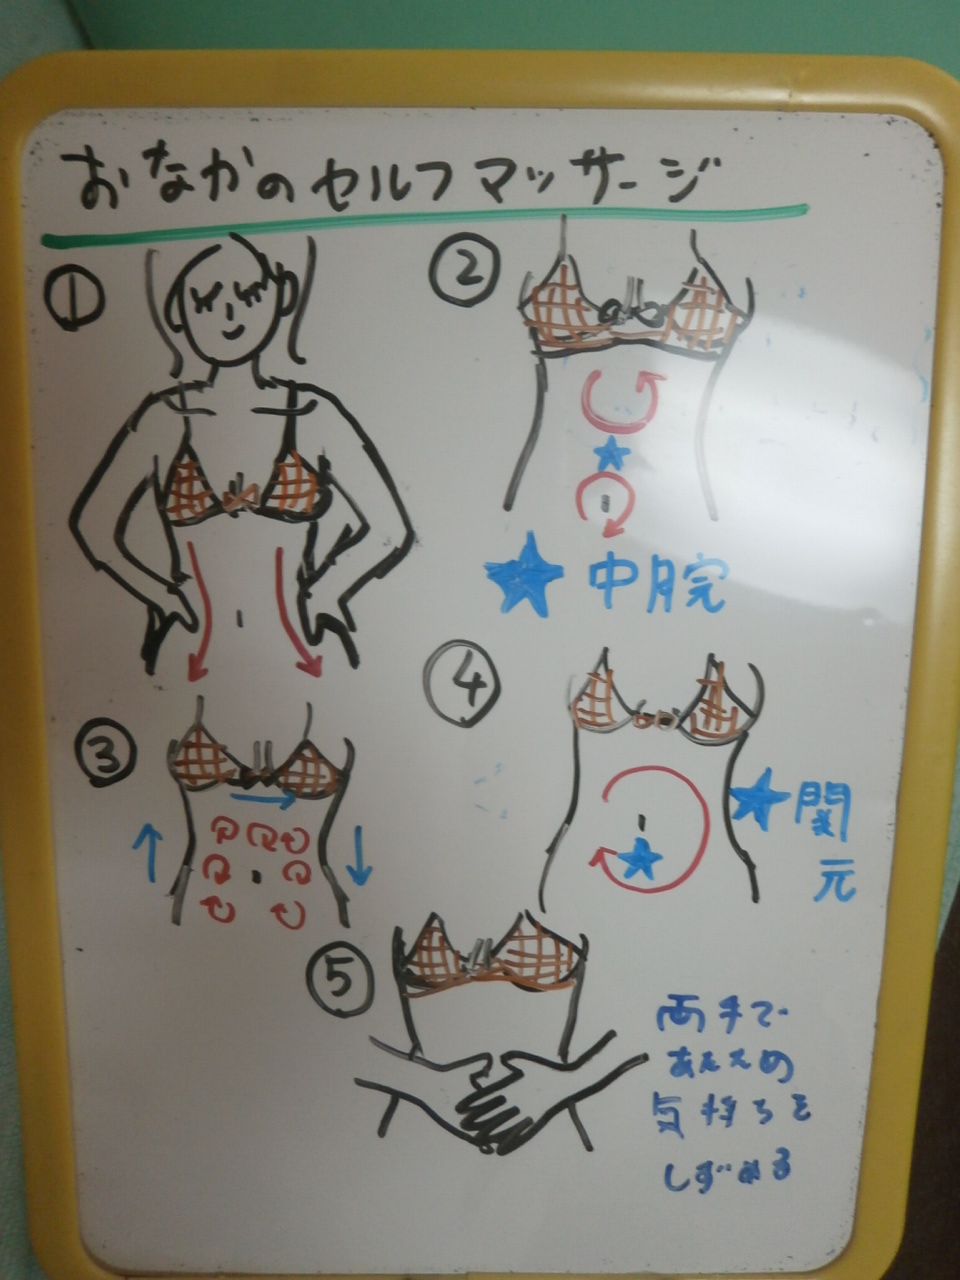 おなかのセルフマッサージ
①
②
★中脘
③
④
★関
元
⑤
両手で
あたため
気持ちを
しずめる